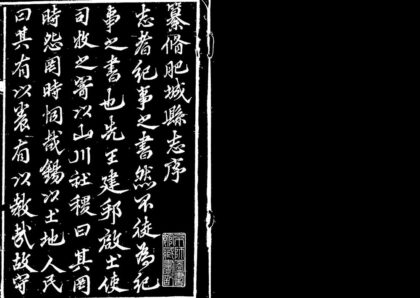 纂脩肥城縣志序
志者紀事之書然不徒為紀
事之書也先王建邦啟土使
司牧之寄以山川社稷曰其罔
時怨罔時恫哉錫以土地人民
曰其有以養有以教哉故守